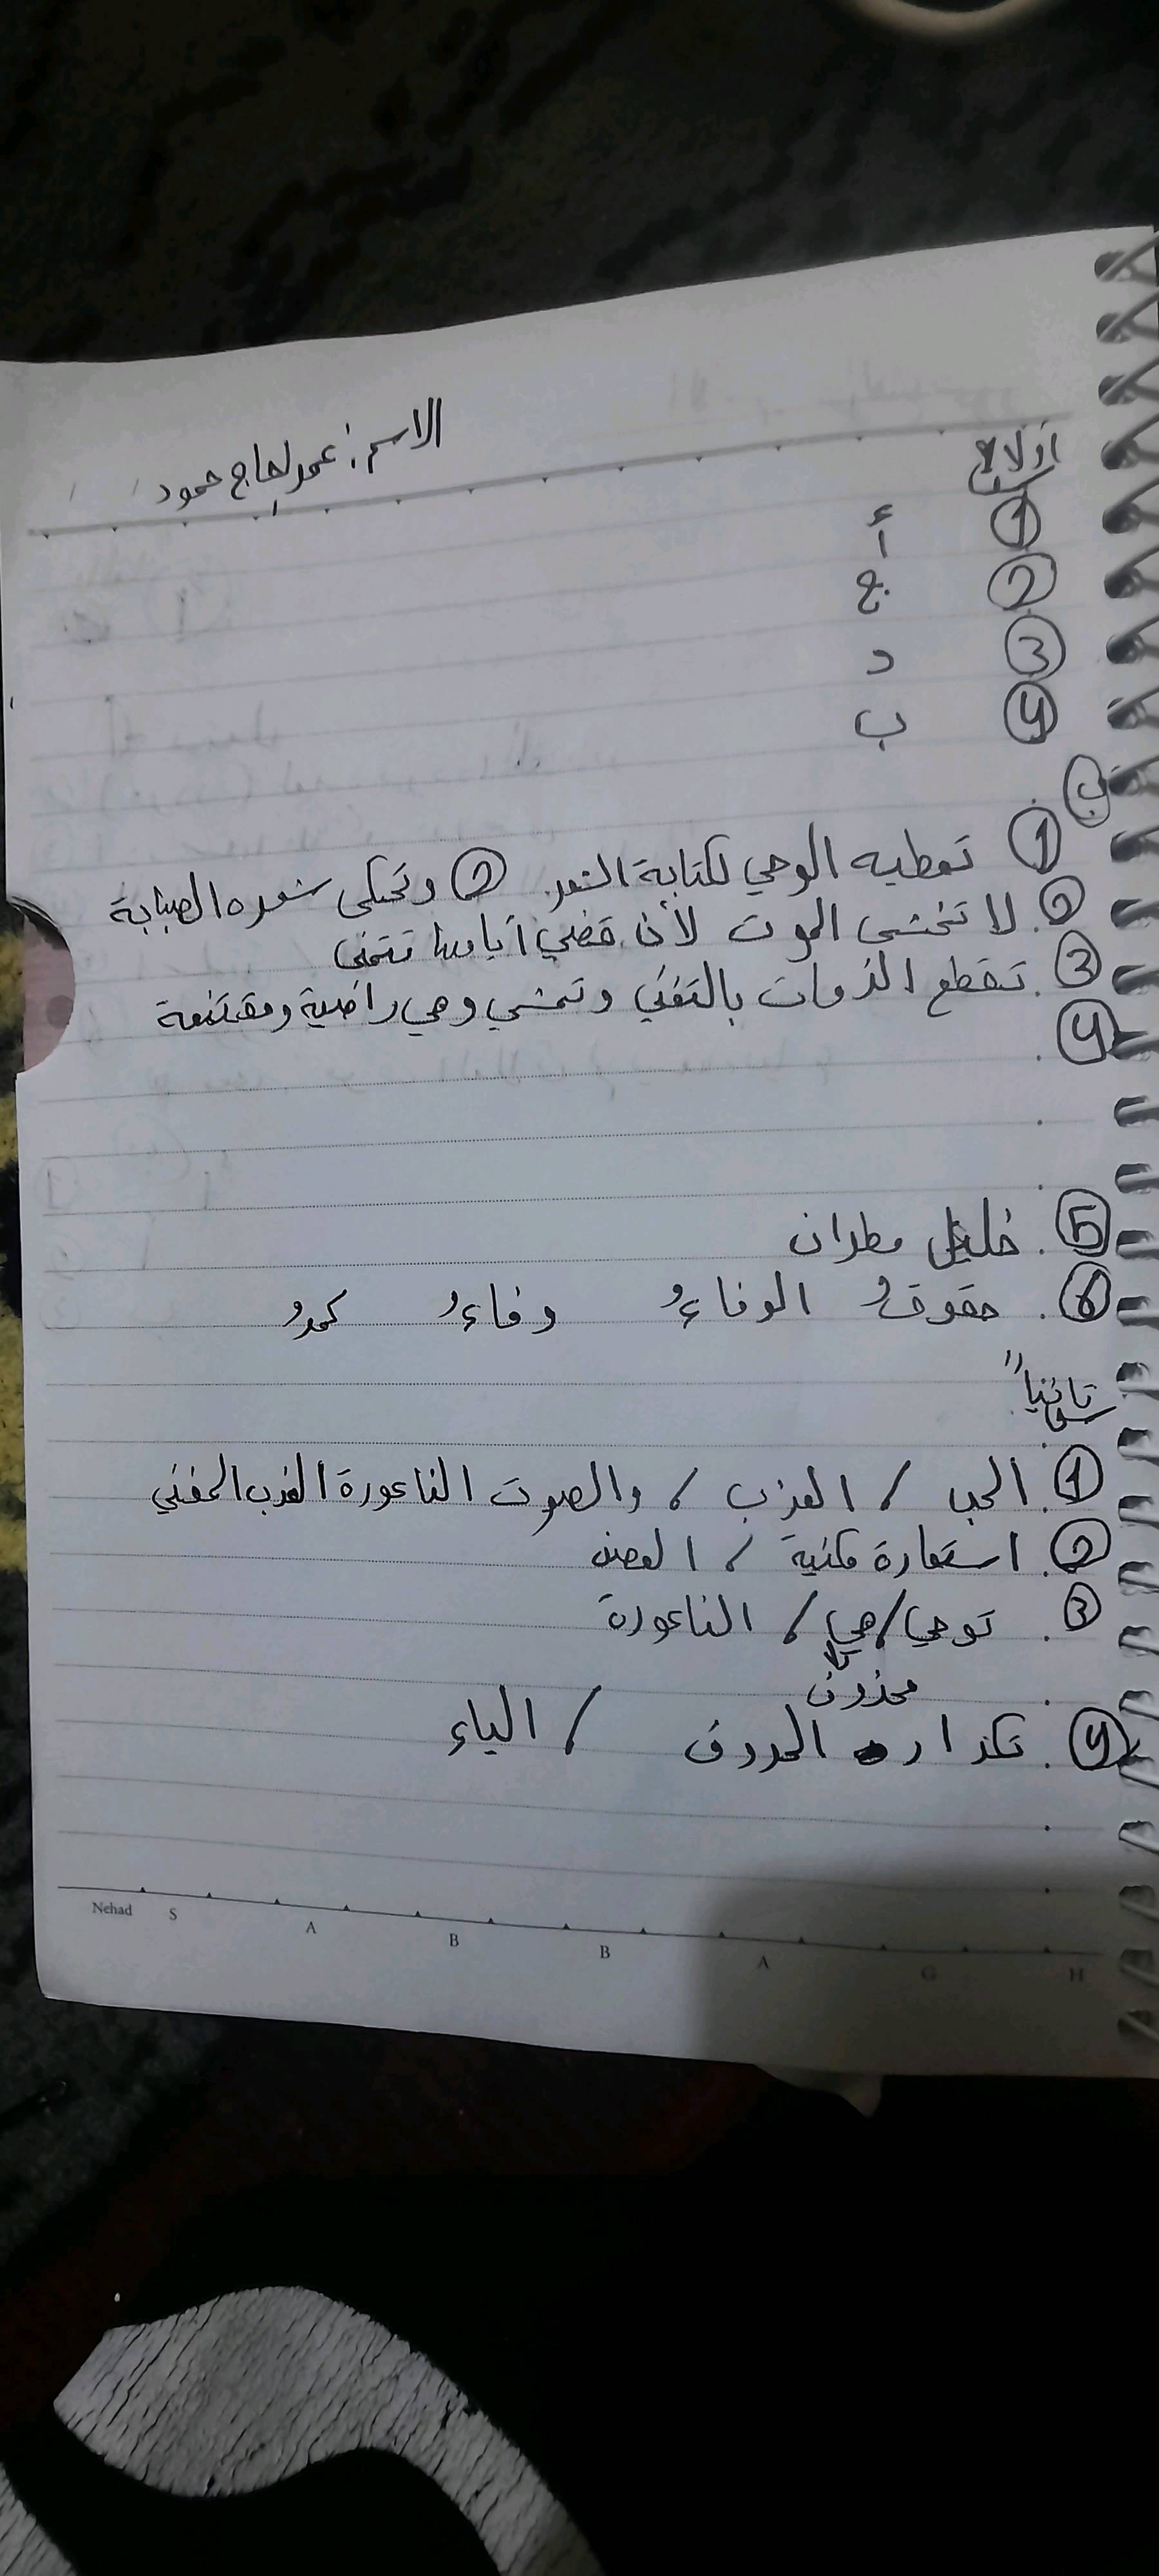 الاسم: عمر الحاج حمود
أولاً
1 أ
2 ج
3 د
4 ب
ب
1 تعطيه الوحي لكتابة الشعر. 2 وتحكى شعره الصبابة
2. لا تخشى الموت لأن قضي أيامها تتمنى
3. تقطع الذمات بالتغني وتمشي وهي راضية ومقتنعة
4
5. خليل مطران
6. حقوقُ الوفاءُ وفاءُ كمدُ
ثانياً
1. الحب / العزب / والصوت الناعورة العزب المغني
2. استعارة مكنية / الغصن
3. توحي/هي/ الناعورة
محذوف
4. تكرار الحروف / الياء
Nehad S A B B A G H